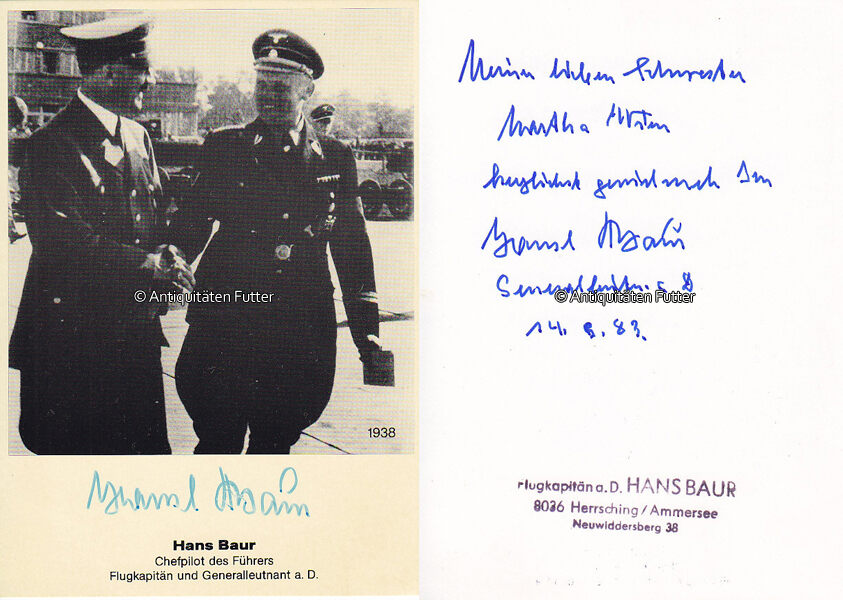 1938
© Antiquitäten Futter
Hansl Baur
Hans Baur
Chefpilot des Führers
Flugkapitän und Generalleutnant a. D.
Meiner lieben Schwester
Martha
herzlichst gewidmet
Hansl Baur
© Antiquitäten Futter
83.
Flugkapitän a. D. HANS BAUR
8036 Herrsching/Ammersee
Neuwiddersberg 38